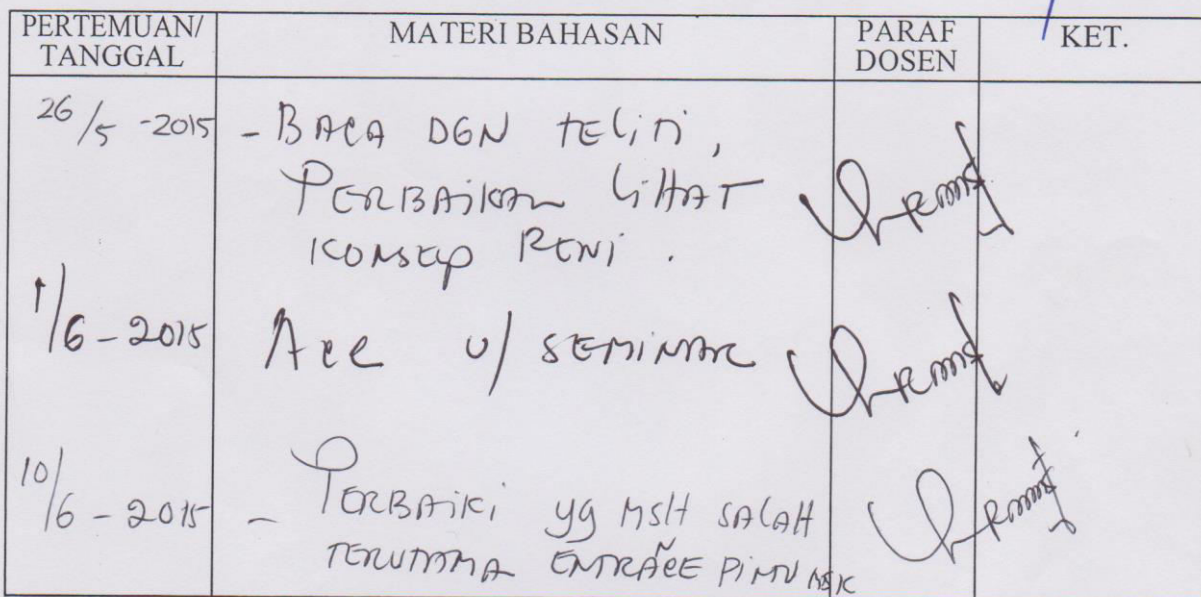 PERTEMUAN/ TANGGAL MATERI BAHASAN PARAF DOSEN KET.
26/5-2015 - BACA DGN teliti,
PERBAIKAN LIHAT
KONSEP RENI.
1/6-2015 Acc u/ SEMINAR
10/6-2015 - PERBAIKI yg MSH SALAH
TERUTAMA ENTRANCE PINTU MSK